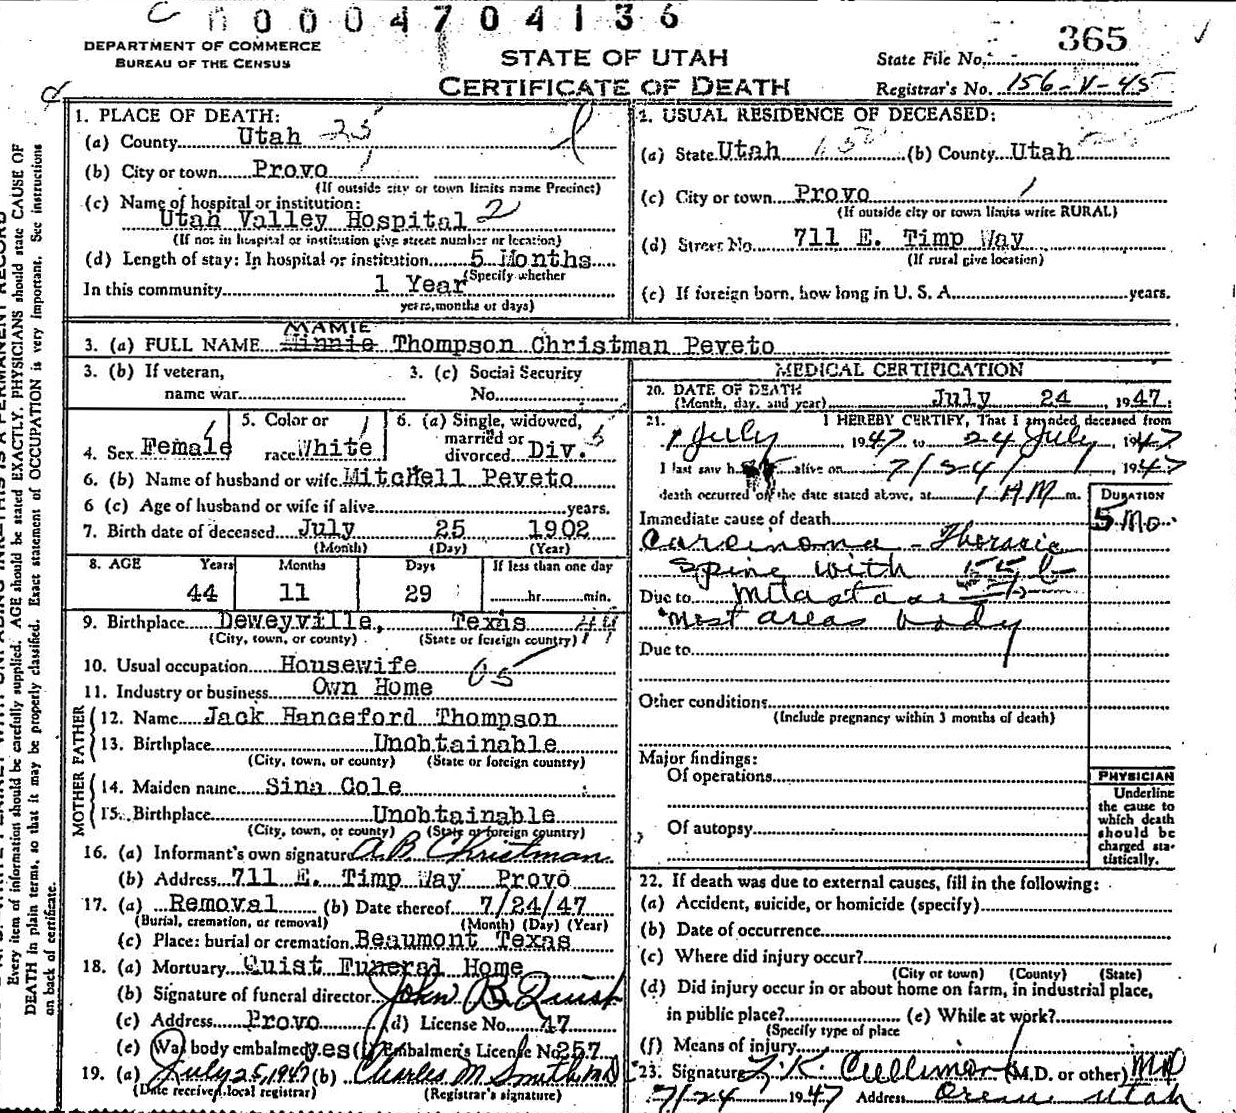 0004704136
DEPARTMENT OF COMMERCE
BUREAU OF THE CENSUS
STATE OF UTAH
CERTIFICATE OF DEATH
365
State File No.
Registrar's No. 156-V-45
1. PLACE OF DEATH:
(a) County Utah 25
(b) City or town Provo 1
(If outside city or town limits name Precinct)
(c) Name of hospital or institution:
Utah Valley Hospital 2
(If not in hospital or institution give street number or location)
(d) Length of stay: In hospital or institution 5 Months
(Specify whether
In this community 1 Year
years, months or days)
2. USUAL RESIDENCE OF DECEASED:
(a) State Utah (b) County Utah
(c) City or town Provo 1
(If outside city or town limits write RURAL)
(d) Street No. 711 E. Timp Way
(If rural give location)
(e) If foreign born, how long in U. S. A. years.
MAMIE
3. (a) FULL NAME Minnie Thompson Christman Peveto
3. (b) If veteran,
name war
3. (c) Social Security
No.
4. Sex Female
5. Color or
race White
6. (a) Single, widowed,
married or
divorced Div.
6. (b) Name of husband or wife Mitchell Peveto
6 (c) Age of husband or wife if alive years.
7. Birth date of deceased July 25 1902
(Month) (Day) (Year)
8. AGE Years Months Days If less than one day
44 11 29 hr. min.
9. Birthplace Deweyville, Texas
(City, town, or county) (State or foreign country)
10. Usual occupation Housewife
11. Industry or business Own Home
FATHER
12. Name Jack Hanceford Thompson
13. Birthplace Unobtainable
(City, town, or county) (State or foreign country)
MOTHER
14. Maiden name Sina Cole
15. Birthplace Unobtainable
(City, town, or county) (State or foreign country)
16. (a) Informant's own signature A B Christman
(b) Address 711 E. Timp Way Provo
17. (a) Removal (b) Date thereof 7/24/47
(Burial, cremation, or removal) (Month) (Day) (Year)
(c) Place: burial or cremation Beaumont Texas
18. (a) Mortuary Quist Funeral Home
(b) Signature of funeral director John B. Quist
(c) Address Provo (d) License No. 47
(e) Was body embalmed yes (f) Embalmer's License No 257
19. (a) July 25, 1947 (b) Charles M Smith MD
(Date received local registrar) (Registrar's signature)
MEDICAL CERTIFICATION
20. DATE OF DEATH
(Month, day, and year) July 24 1947
21. I HEREBY CERTIFY, That I attended deceased from
1 July 1947 to 24 July, 1947
I last saw h alive on 1947
death occurred on the date stated above, at 1 AM m.
DURATION
5 Mo
Immediate cause of death
Carcinoma - Thoracic
spine with
Due to
most areas body
Due to
Other conditions
(Include pregnancy within 3 months of death)
Major findings:
Of operations
Of autopsy
PHYSICIAN
Underline
the cause to
which death
should be
charged sta-
tistically.
22. If death was due to external causes, fill in the following:
(a) Accident, suicide, or homicide (specify)
(b) Date of occurrence
(c) Where did injury occur?
(City or town) (County) (State)
(d) Did injury occur in or about home on farm, in industrial place,
in public place? (e) While at work?
(Specify type of place
(f) Means of injury
23. Signature (M.D. or other) MD
7/24 1947 Address Orem Utah
Every item of information should be carefully supplied. AGE should be stated EXACTLY. PHYSICIANS should state CAUSE OF
DEATH in plain terms, so that it may be properly classified. Exact statement of OCCUPATION is very important. See instructions
on back of certificate.